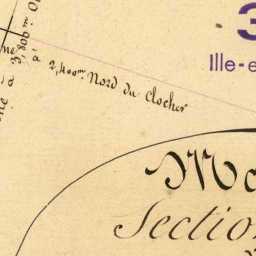 3
Ille-e
à 3,800m
à 2,400m Nord du Clocher
Mo
Section